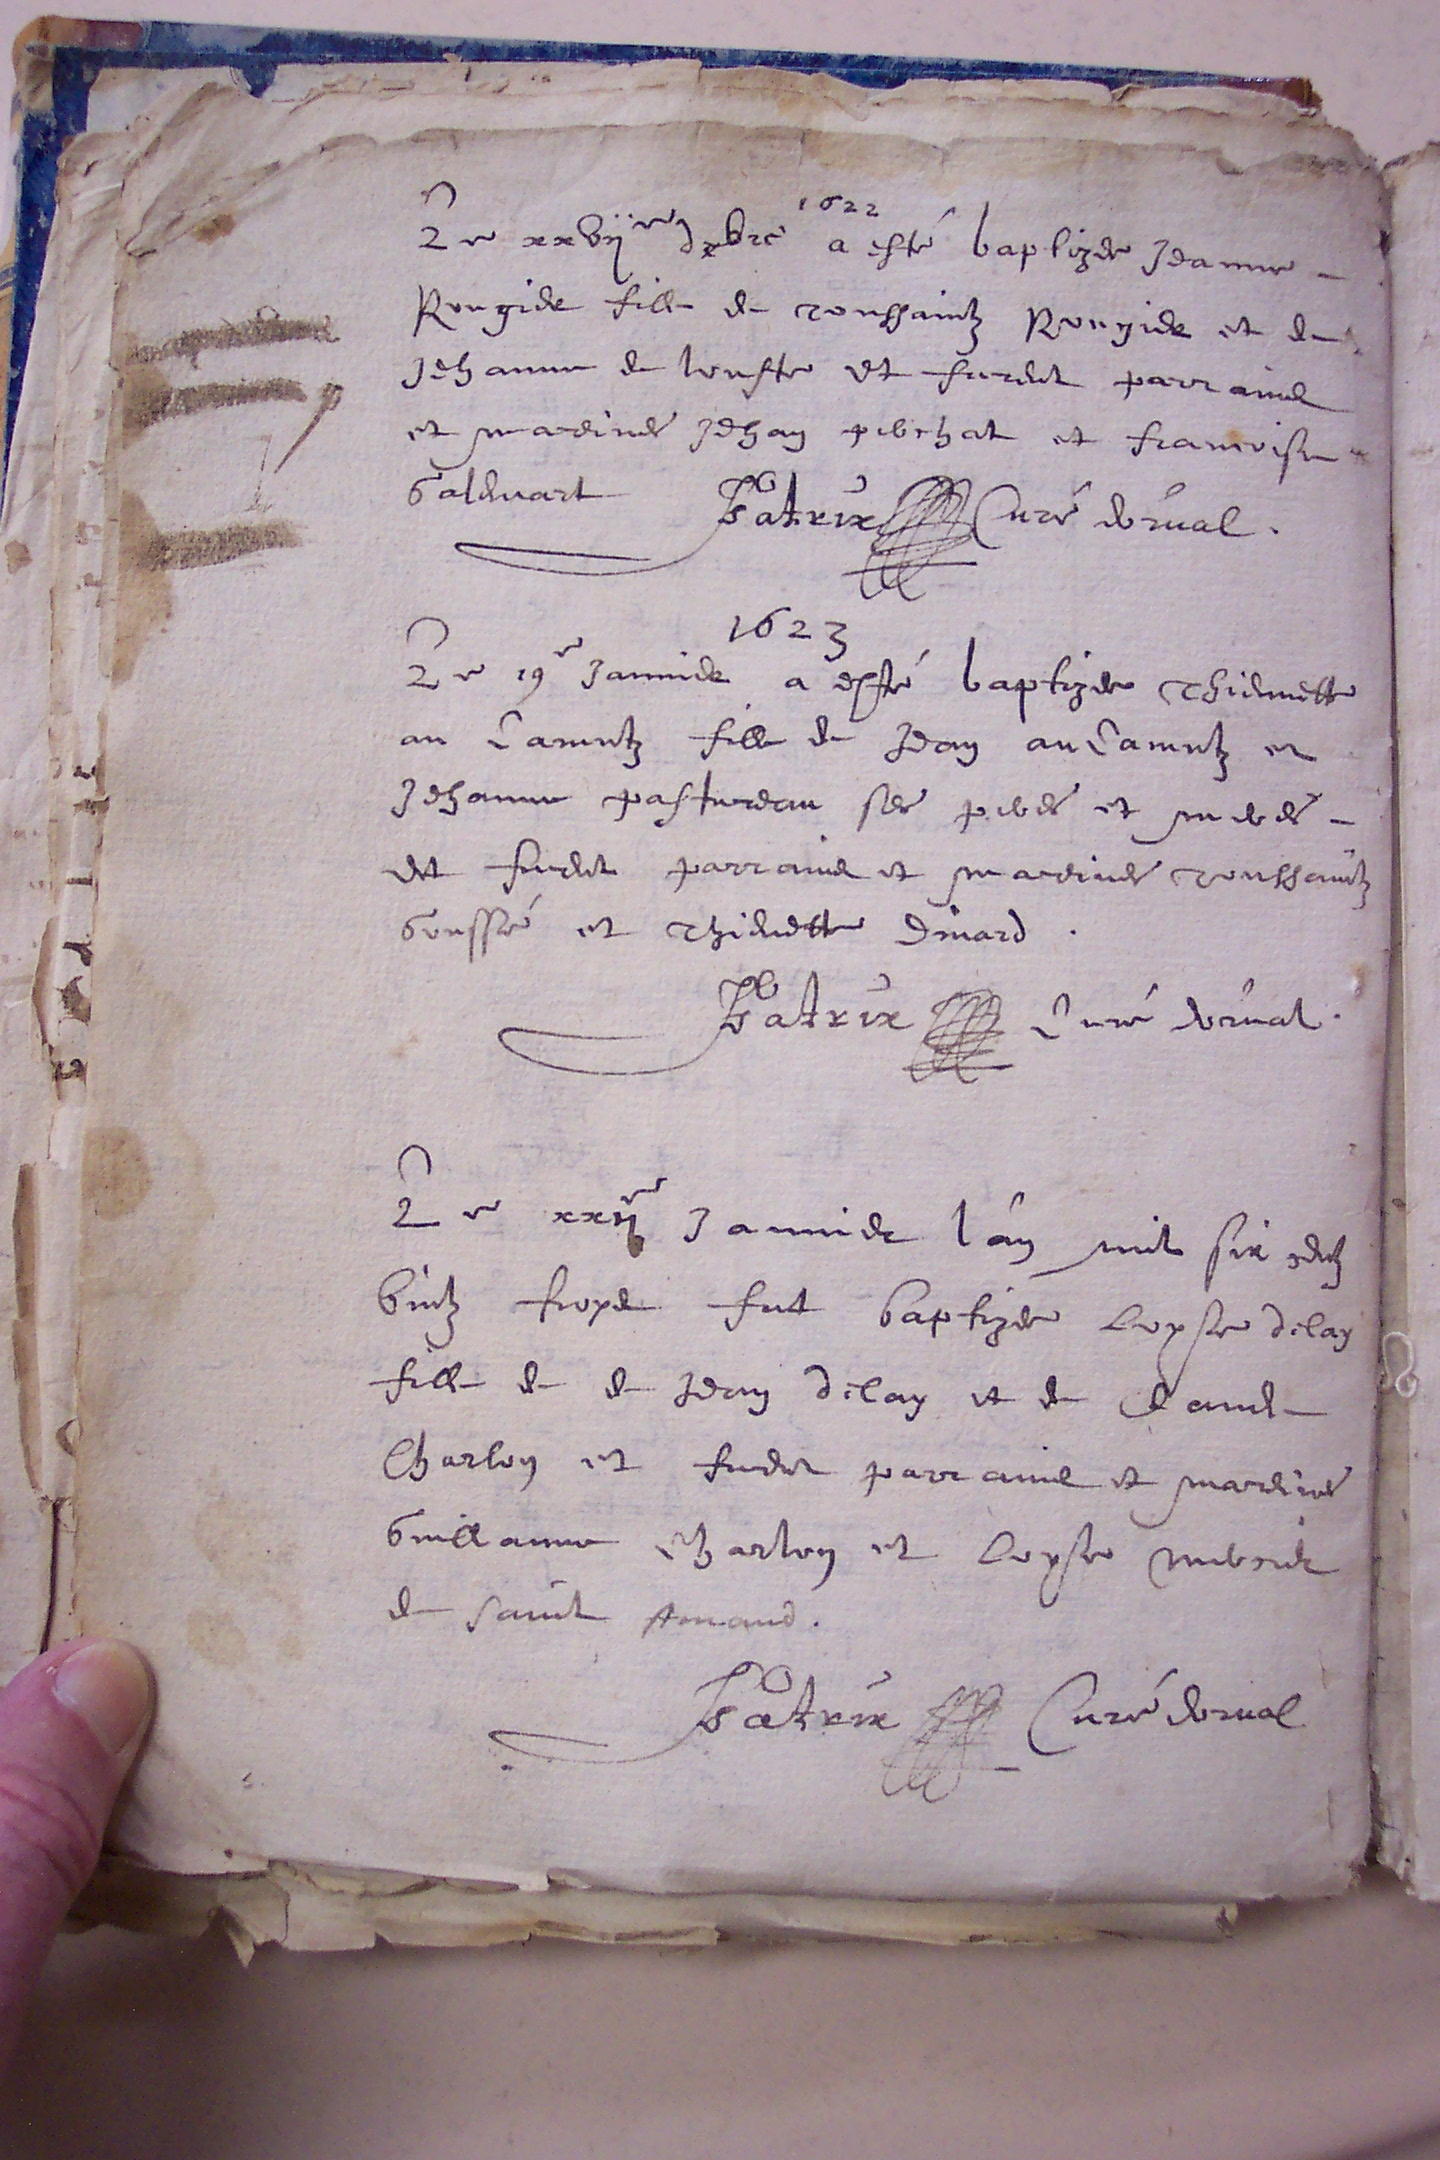 1622
Le xxvije Xbre a esté baptizée Jeanne
Rougier fille de toussaintz Rougier et de
Jehanne de et furent parrains
et marines Jehan pichat et francoise
galduart Patrix Curé dorual.
1623
Le 19e Januier a esté baptizée thiennette
au Camutz fille de Jean au Camutz et
Jehanne pastureau ses peres et meres
et furent parrains et marines toussaintz
gouffé et thienette Emard.
Patrix Curé dorual.
Le xxije Januier lan mil six centz
vintz troys fut baptizée Loyse delay
fille de de Jean delay et de Claude
Charlon et furent parrains et marines
guillaume Charlon et Loyse mercier
de saint Amand.
Patrix Curé dorual